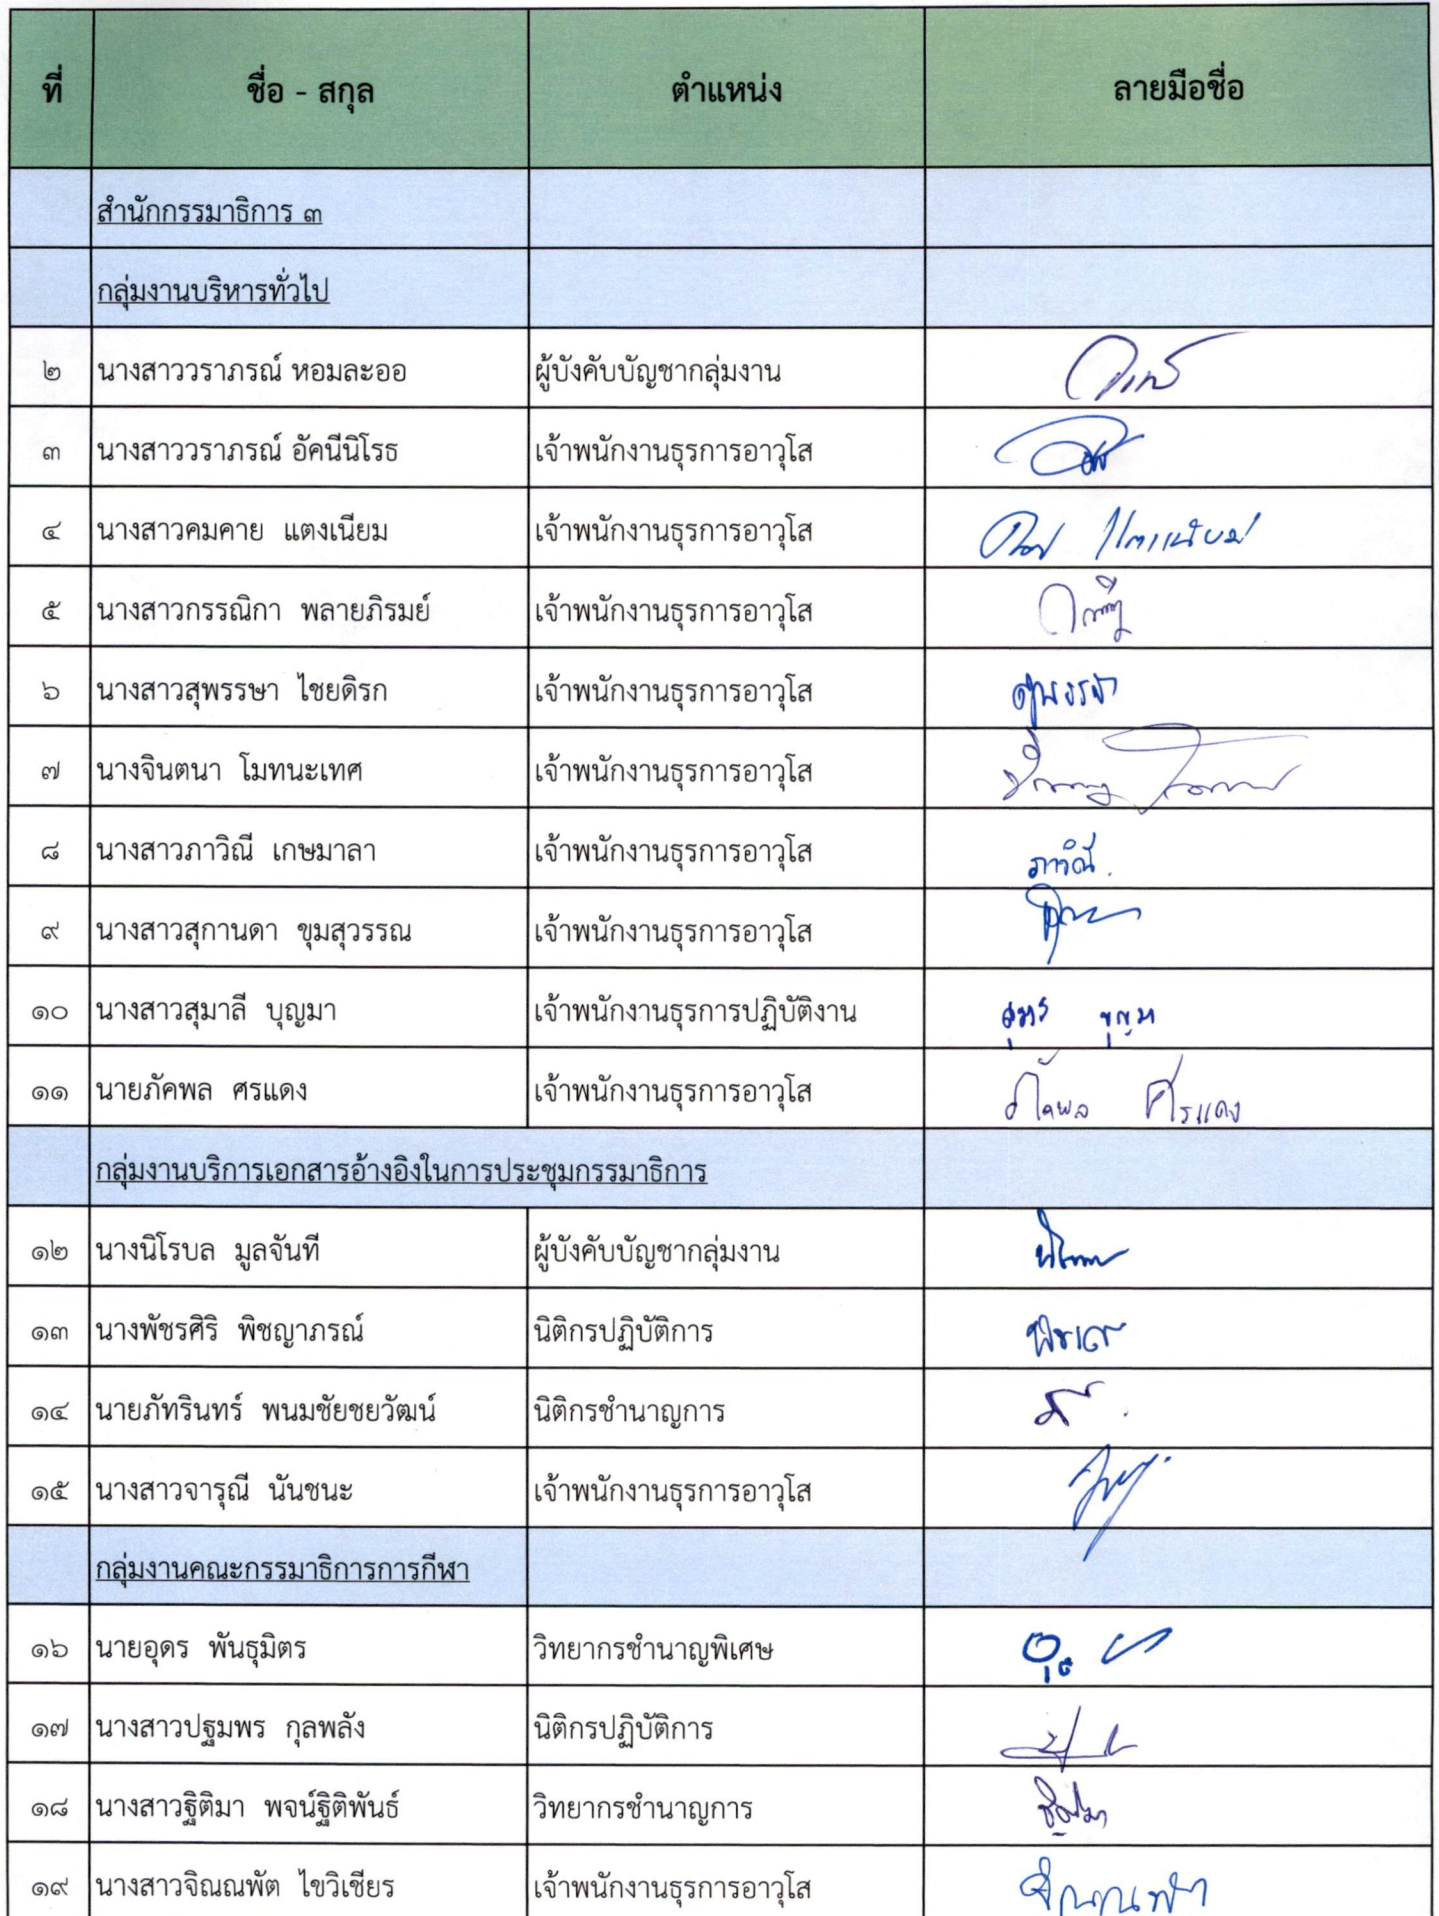 ที่ ชื่อ - สกุล ตำแหน่ง ลายมือชื่อ
สำนักกรรมาธิการ ๓
กลุ่มงานบริหารทั่วไป
๒ นางสาววราภรณ์ หอมละออ ผู้บังคับบัญชากลุ่มงาน
๓ นางสาววราภรณ์ อัคนีนิโรธ เจ้าพนักงานธุรการอาวุโส
๔ นางสาวคมคาย แตงเนียม เจ้าพนักงานธุรการอาวุโส
๕ นางสาวกรรณิกา พลายภิรมย์ เจ้าพนักงานธุรการอาวุโส
๖ นางสาวสุพรรษา ไชยดิรก เจ้าพนักงานธุรการอาวุโส สุพรรษา
๗ นางจินตนา โมทนะเทศ เจ้าพนักงานธุรการอาวุโส
๘ นางสาวภาวิณี เกษมาลา เจ้าพนักงานธุรการอาวุโส ภาวิณี.
๙ นางสาวสุกานดา ขุมสุวรรณ เจ้าพนักงานธุรการอาวุโส
๑๐ นางสาวสุมาลี บุญมา เจ้าพนักงานธุรการปฏิบัติงาน สุมาลี บุญมา
๑๑ นายภัคพล ศรแดง เจ้าพนักงานธุรการอาวุโส ภัคพล ศรแดง
กลุ่มงานบริการเอกสารอ้างอิงในการประชุมกรรมาธิการ
๑๒ นางนิโรบล มูลจันที ผู้บังคับบัญชากลุ่มงาน
๑๓ นางพัชรศิริ พิชญาภรณ์ นิติกรปฏิบัติการ
๑๔ นายภัทรินทร์ พนมชัยชยวัฒน์ นิติกรชำนาญการ
๑๕ นางสาวจารุณี นันชนะ เจ้าพนักงานธุรการอาวุโส
กลุ่มงานคณะกรรมาธิการการกีฬา
๑๖ นายอุดร พันธุมิตร วิทยากรชำนาญพิเศษ
๑๗ นางสาวปฐมพร กุลพลัง นิติกรปฏิบัติการ
๑๘ นางสาวฐิติมา พจน์ฐิติพันธ์ วิทยากรชำนาญการ
๑๙ นางสาวจิณณพัต ไขวิเชียร เจ้าพนักงานธุรการอาวุโส